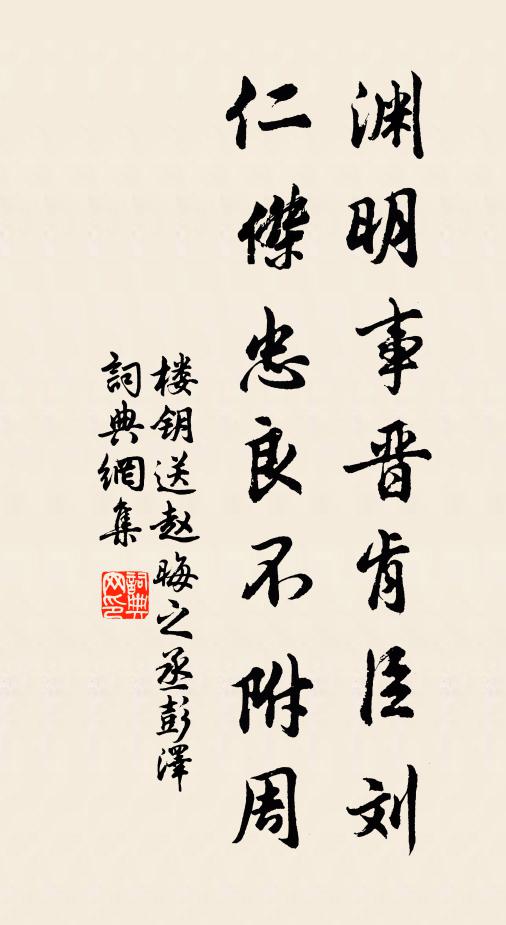 渊明事晋肯臣刘
仁傑忠良不附周
楼钥送赵晦之丞彭澤
詞典網集
詞典网印